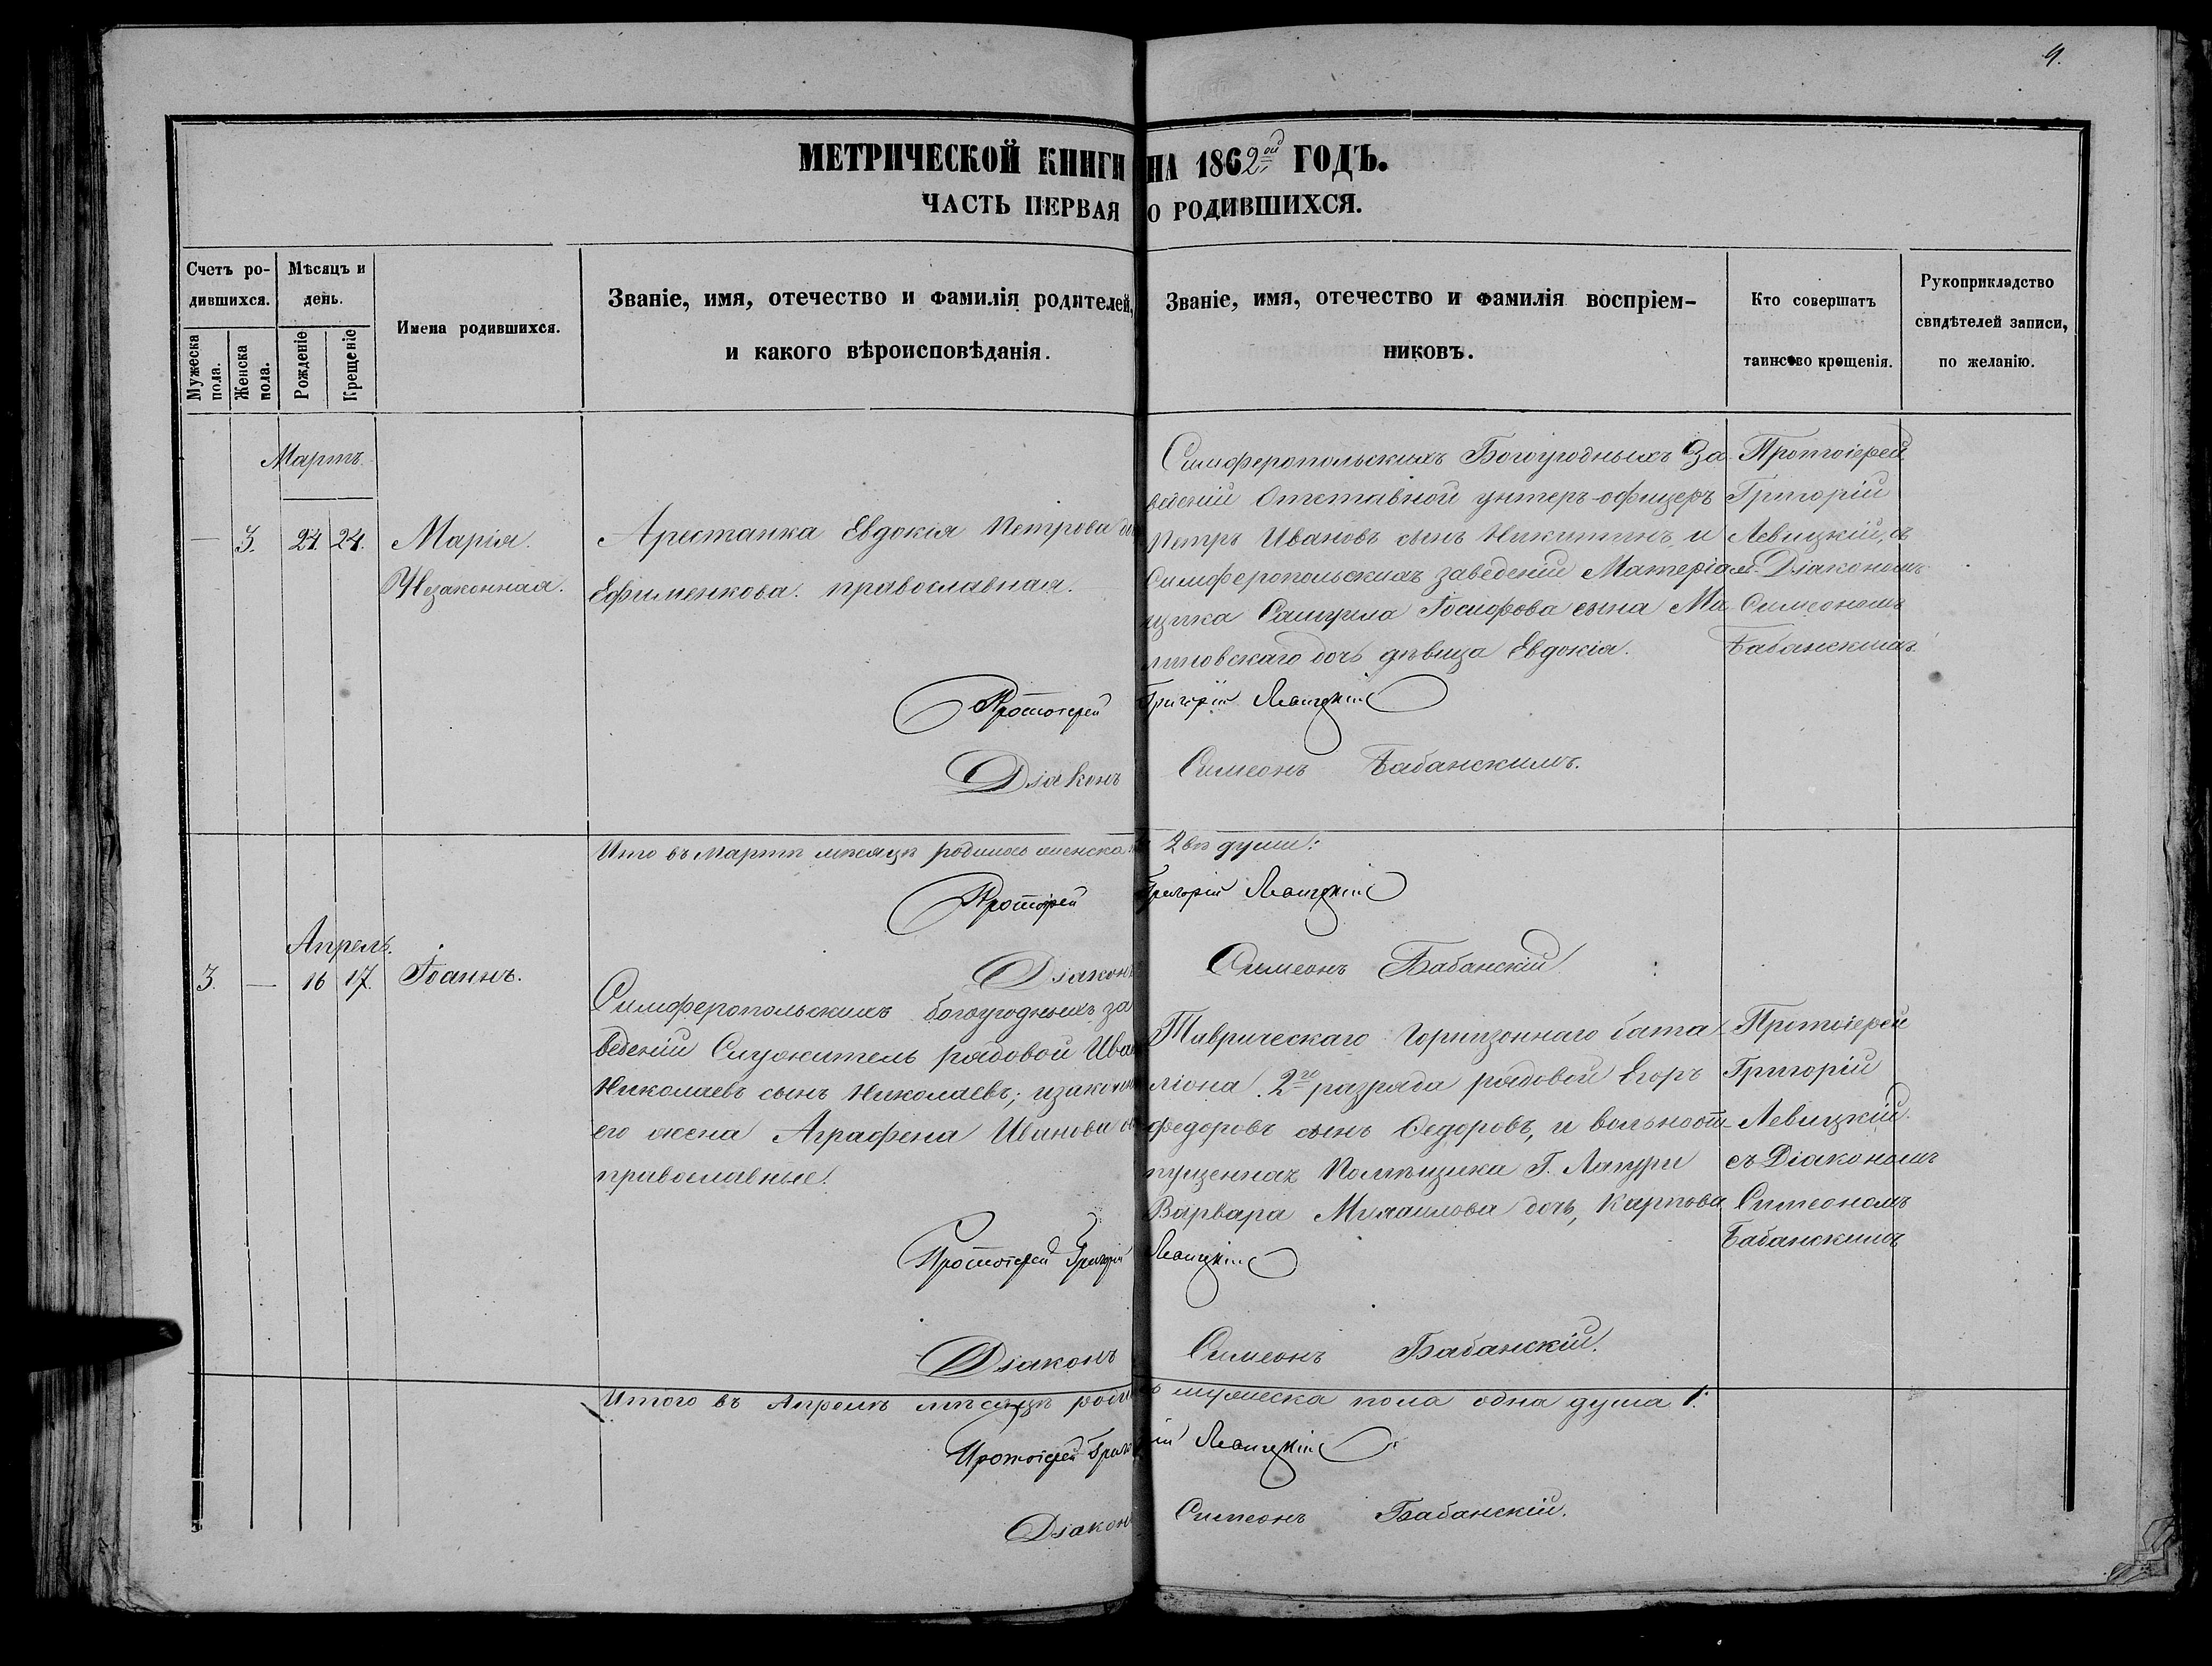 4.
МЕТРИЧЕСКОЙ КНИГИ НА 1862ой ГОДЪ.
ЧАСТЬ ПЕРВАЯ О РОДИВШИХСЯ.
Счетъ ро-
дившихся.
Мужеска пола.
Женска пола.
Мѣсяцъ и
день.
Рожденіе
Крещеніе
Имена родившихся.
Званіе, имя, отечество и фамилія родителей,
и какого вѣроисповѣданія.
Званіе, имя, отечество и фамилія воспріем-
никовъ.
Кто совершатъ
таинсво крещенія.
Рукоприкладство
свидѣтелей записи,
по желанію.
Мартъ
— 3. 24. 24. Марія.
Незаконная.
Арестанка Евдокія Петрова до
Ефименкова. православная.
Симферопольскихъ Богоугодныхъ За
веденій Отставной унтеръ-офицеръ
Петръ Ивановъ сынъ Никитинъ, и
Симферопольскихъ заведеній Матеріал
щика Самуила Іосифова сына Ма
линовскаго дочь дѣвица Евдокія.
Протоіерей
Григорій
Левицкій, съ
Діакономъ
Симеономъ
Бабанскимъ
Протоіерей Григорій Левицкій
Діаконъ Симеонъ Бабанскимъ.
Итго въ Мартѣ мѣсяцѣ родилось женска 2вѣ души:
Протоіерей Григорій Левицкій
Діаконъ Симеонъ Бабанскій
Апрель.
3. — 16 17. Іоаннъ.
Симферопольскихъ богоугодныхъ за
веденій Служитель рядовой Иван
Николаевъ сынъ Николаевъ; изаконная
его жена Аграфена Иванова
православные.
Таврическаго Горнизоннаго бата
ліона 2го разряда рядовой Егоръ
Федоровъ сынъ Федоровъ, и вольноот
пущенная Помѣщика Г.
Варвара Михаилова дочь, Карпова
Протоіерей
Григорій
Левицкій
съ Діакономъ
Симеономъ
Бабанскимъ
Протоіерей Григорій Левицкій
Діаконъ Симеонъ Бабанскій.
Итого въ Апрелѣ мѣсяцѣ роди ь мужеска пола одна душа 1.
Протоіерей Григорій Левицкій
Діаконъ Симеонъ Бабанскій.